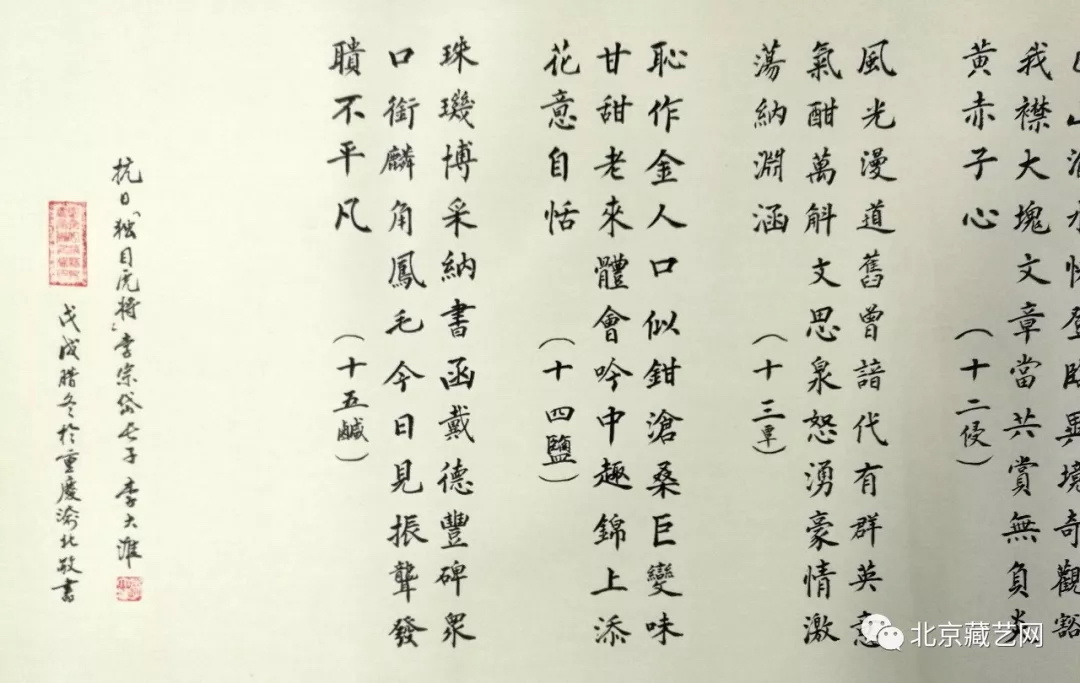 山渝水快登臨異境奇觀豁
我襟大塊文章當共賞無負炎
黃赤子心（十二侵）
風光漫道舊曾諳代有群英意
氣酣萬斛文思泉怒湧豪情激
蕩納淵涵（十三覃）
恥作金人口似鉗滄桑巨變味
甘甜老來體會吟中趣錦上添
花意自恬（十四鹽）
珠璣博采納書函戴德豐碑眾
口銜麟角鳳毛今日見振聾發
聵不平凡（十五鹹）
抗日“独目虎将”李宗岱长子 李大淮
戊戌腊冬於重慶渝北敬書
北京藏艺网